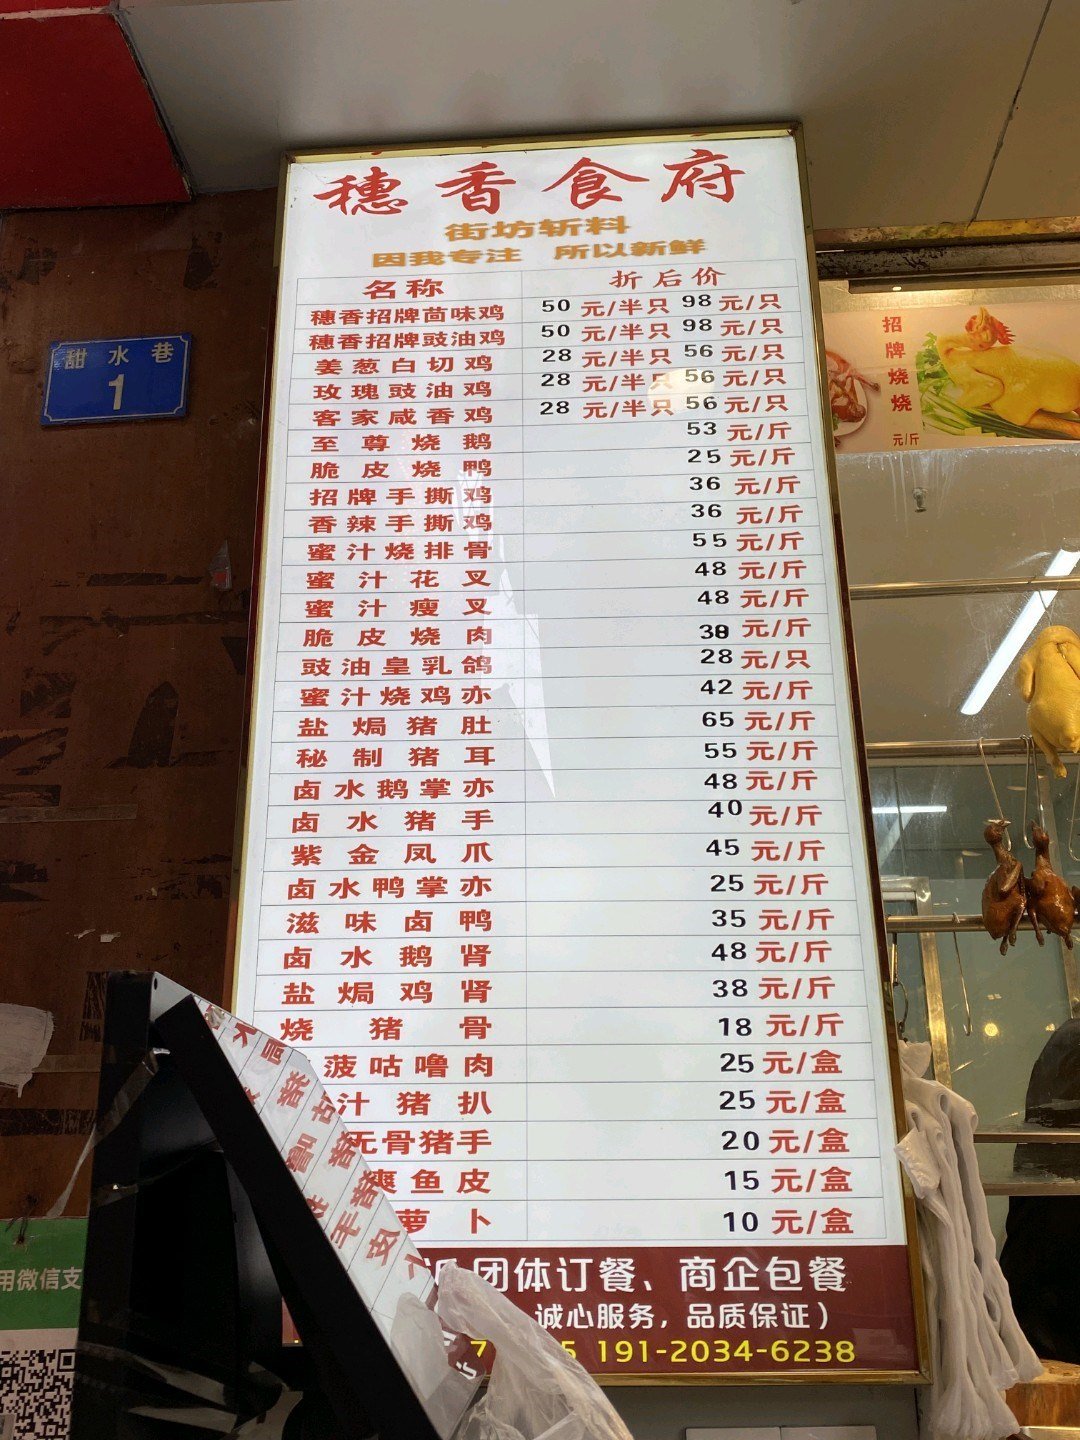 穗香食府
街坊斩料
因我专注 所以新鲜
名称 折后价
穗香招牌茴味鸡 50 元/半只 98 元/只
穗香招牌豉油鸡 50 元/半只 98 元/只
姜葱白切鸡 28 元/半只 56 元/只
玫瑰豉油鸡 28 元/半只 56 元/只
客家咸香鸡 28 元/半只 56 元/只
至尊烧鹅 53 元/斤
脆皮烧鸭 25 元/斤
招牌手撕鸡 36 元/斤
香辣手撕鸡 36 元/斤
蜜汁烧排骨 55 元/斤
蜜汁花叉 48 元/斤
蜜汁瘦叉 48 元/斤
脆皮烧肉 元/斤
豉油皇乳鸽 28 元/只
蜜汁烧鸡亦 42 元/斤
盐焗猪肚 65 元/斤
秘制猪耳 55 元/斤
卤水鹅掌亦 48 元/斤
卤水猪手 40 元/斤
紫金凤爪 45 元/斤
卤水鸭掌亦 25 元/斤
滋味卤鸭 35 元/斤
卤水鹅肾 48 元/斤
盐焗鸡肾 38 元/斤
烧猪骨 18 元/斤
菠咕噜肉 25 元/盒
汁猪扒 25 元/盒
无骨猪手 20 元/盒
爽鱼皮 15 元/盒
萝卜 10 元/盒
团体订餐、商企包餐
诚心服务，品质保证）
191-2034-6238
甜水巷
1
招牌烧
元/斤
用微信支